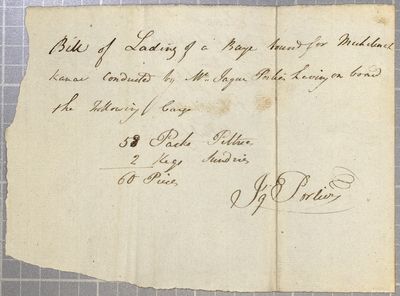 Bill of Lading of a Barge bound for Michilimack
kanac conducted by Mr. Jaques Porlier having on board
the following Cargo
58 Packs Peltries
2 Kegs Sundries
60 Pieces
Jq Porlier